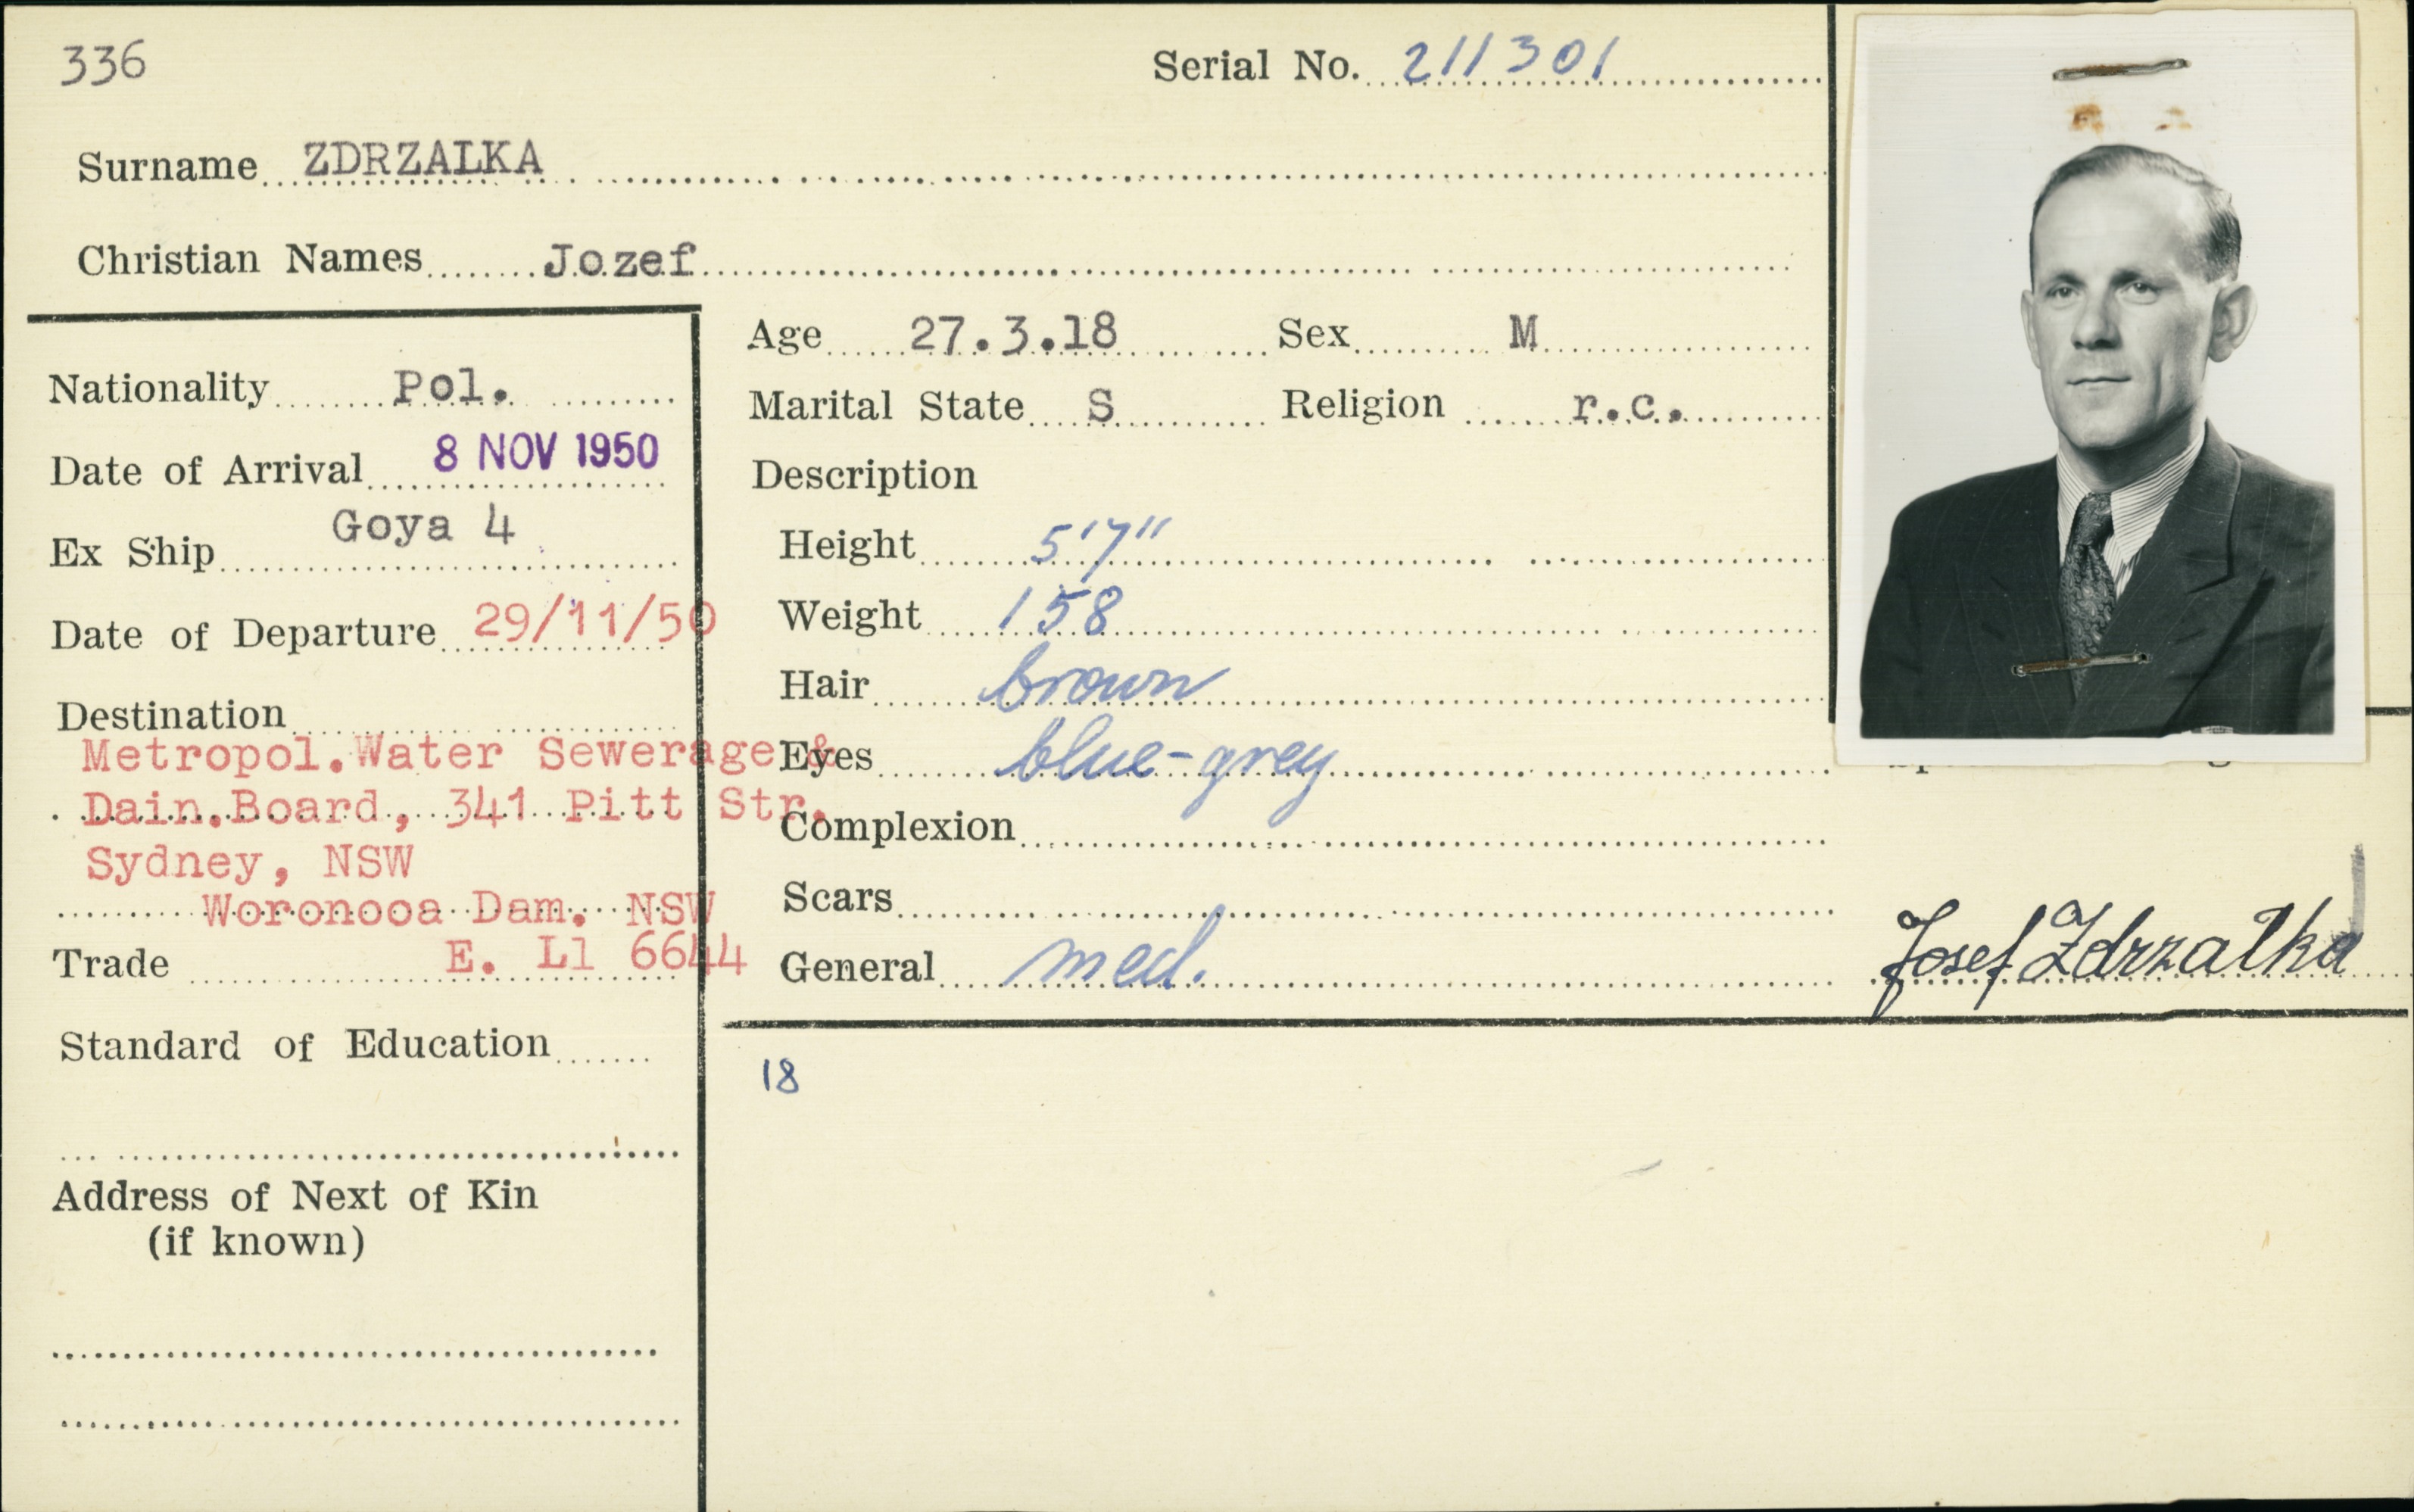 336
Serial No. 211301
Surname ZDRZALKA
Christian Names Jozef
Nationality Pol.
Date of Arrival 8 NOV 1950
Ex Ship Goya 4
Date of Departure 29/11/50
Destination
Metropol.Water Sewerage &
Dain.Board, 341 Pitt Str.
Sydney, NSW
Woronooa Dam. NSW
E. Ll 6644
Trade
Standard of Education
Address of Next of Kin
(if known)
Age 27.3.18 Sex M
Marital State S Religion r.c.
Description
Height 5'7"
Weight 158
Hair brown
Eyes blue-grey
Complexion
Scars
General med.
Josef Zdrzałka
18